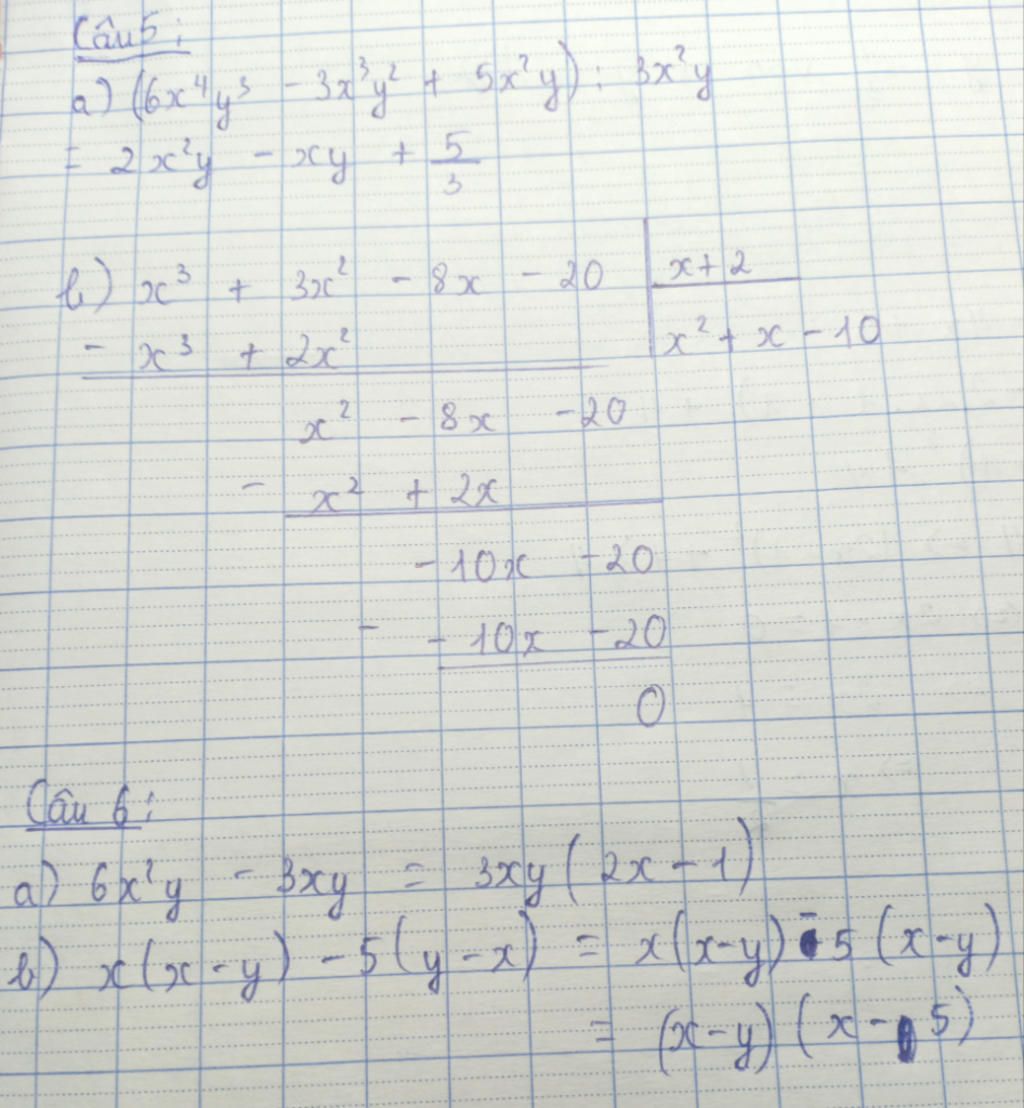 Câu 5:
a) (6x⁴y³ - 3x³y² + 5x²y) : 3x²y
= 2x²y - xy + 5/3
b) x³ + 3x² - 8x - 20 | x + 2
- x³ + 2x² | x² + x - 10
x² - 8x - 20
- x² + 2x
- 10x - 20
- - 10x - 20
0
Câu 6:
a) 6x²y - 3xy = 3xy(2x - 1)
b) x(x - y) - 5(y - x) = x(x - y) - 5(x - y)
= (x - y)(x - 5)